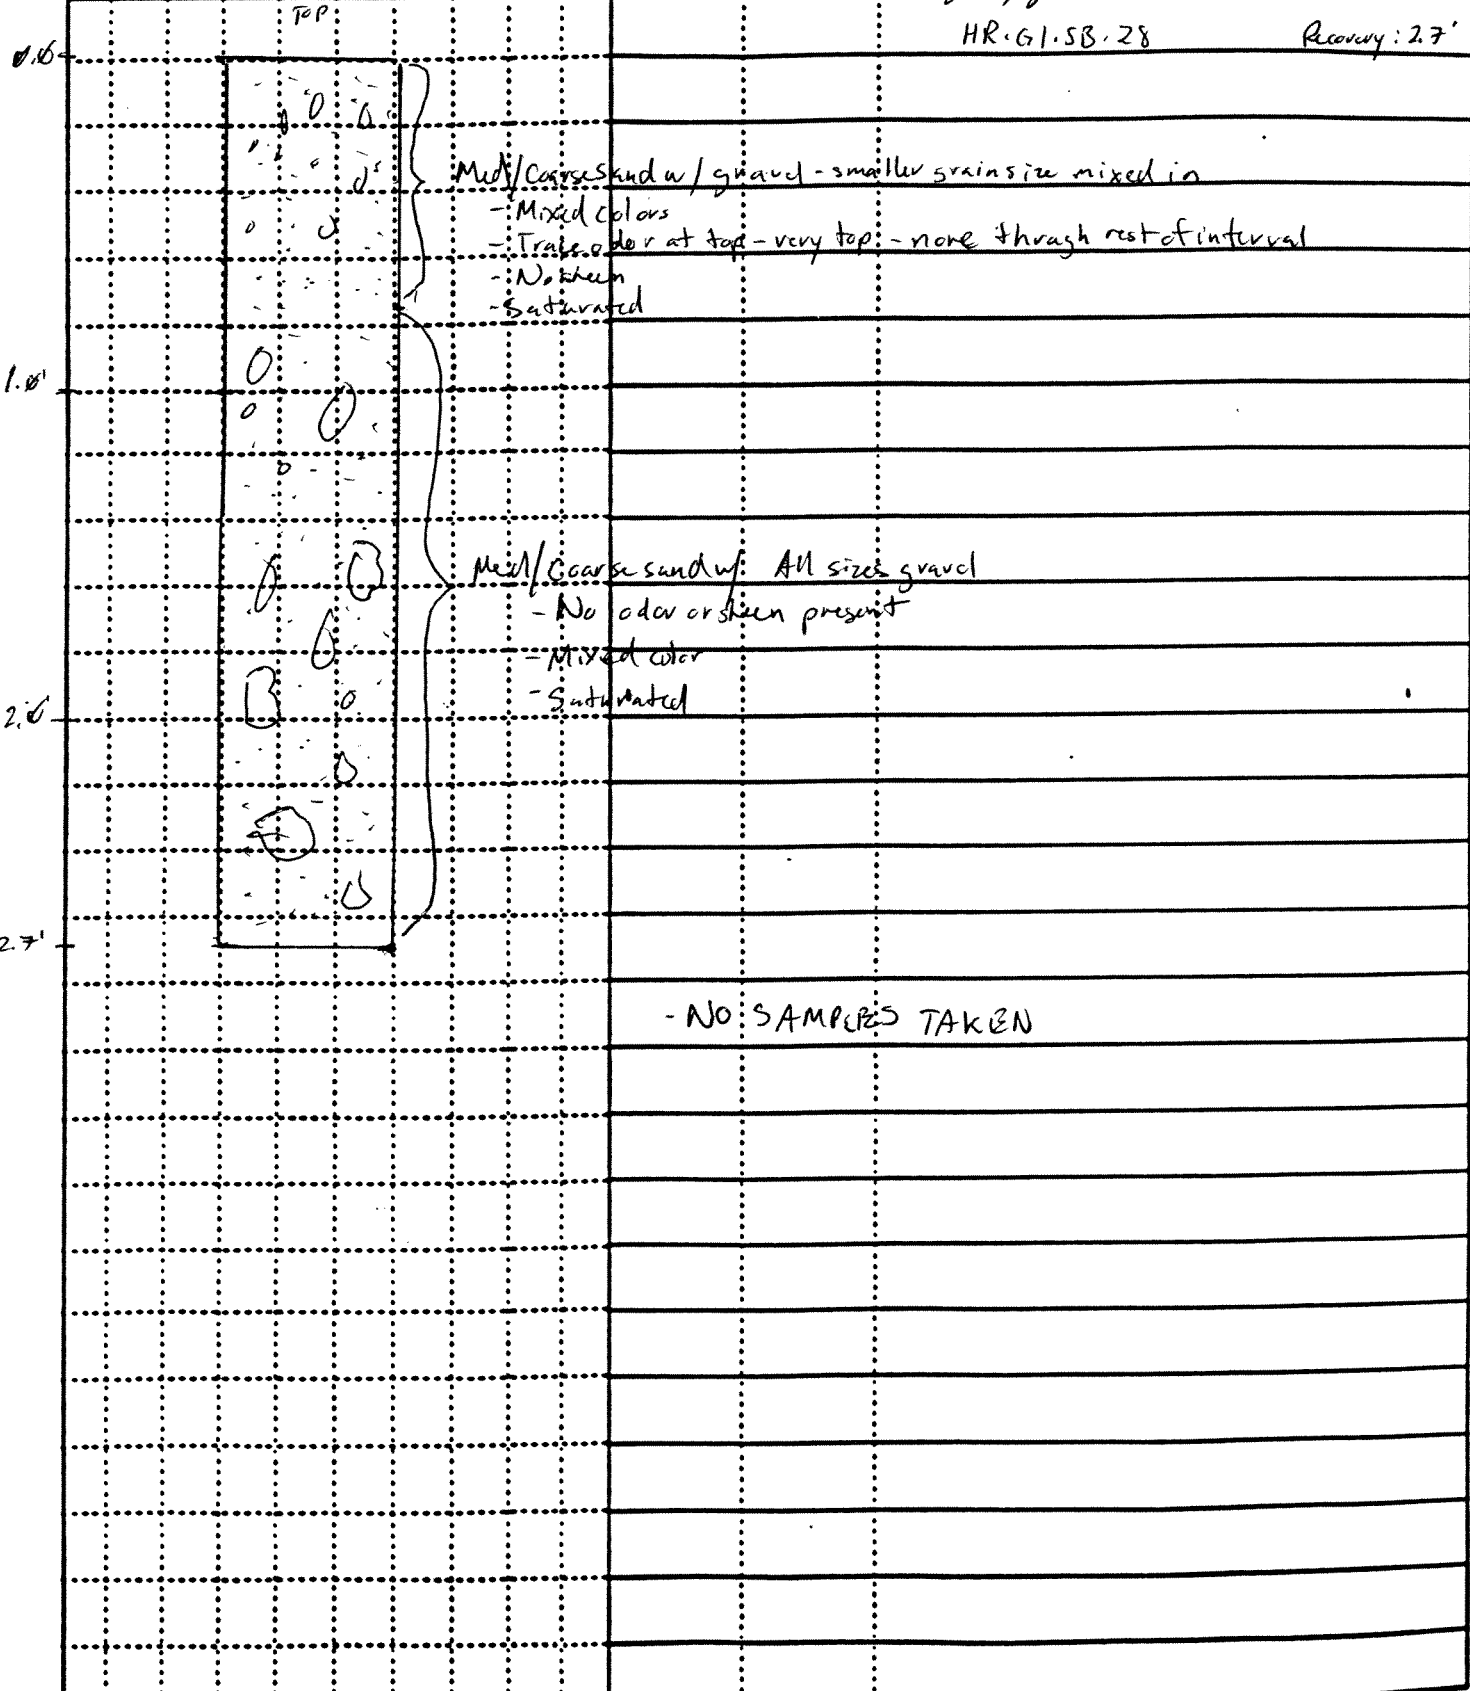 TOP
HR.G1.SB.28 Recovery: 2.7'
0.0
Med/Coarse Sand w/ gravel - smaller grain size mixed in
- Mixed colors
- Trace odor at top - very top - none through rest of interval
- No sheen
- Saturated
1.0'
Med/Coarse sand w/ All sizes gravel
- No odor or sheen present
- Mixed color
- Saturated
2.0'
2.7'
- NO SAMPLES TAKEN